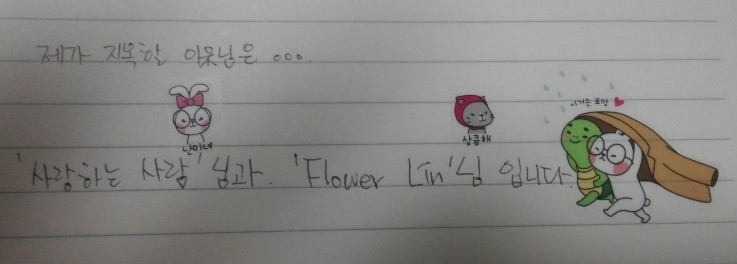 제가 지목할 이웃님은 ...
이거슨 로망
난이녀
상큼해
'사랑하는 사람' 님과. 'Flower Lin'님 입니다.